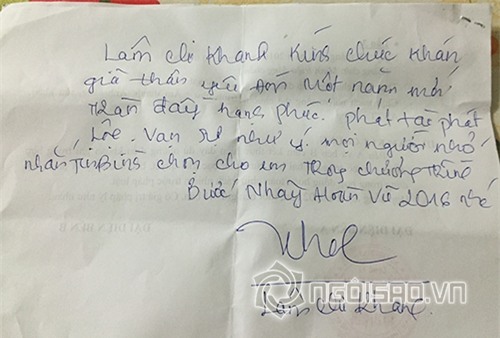 Lâm chi Khanh Kính chúc Khán
giả thân yêu đón Một năm mới
tràn đầy hạnh phúc. phát tài phát
Lộc. Vạn sự như ý. mọi người nhớ
nhắn tin Bình chọn cho em Trong chương trình
Bước Nhảy Hoàn Vũ 2016 nhé
Lâm Chi Khanh.
NGÔISAO.VN